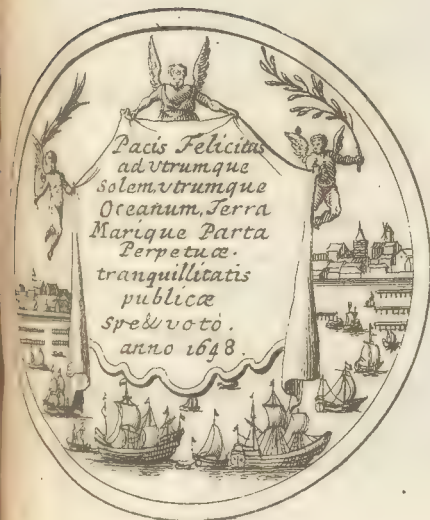 Pacis Felicitas
ad Vtrumque
Solem vtrumque
Oceanum, Terra
Marique Parta
Perpetuæ.
tranquillitatis
publicæ
Spe & voto.
anno 1648